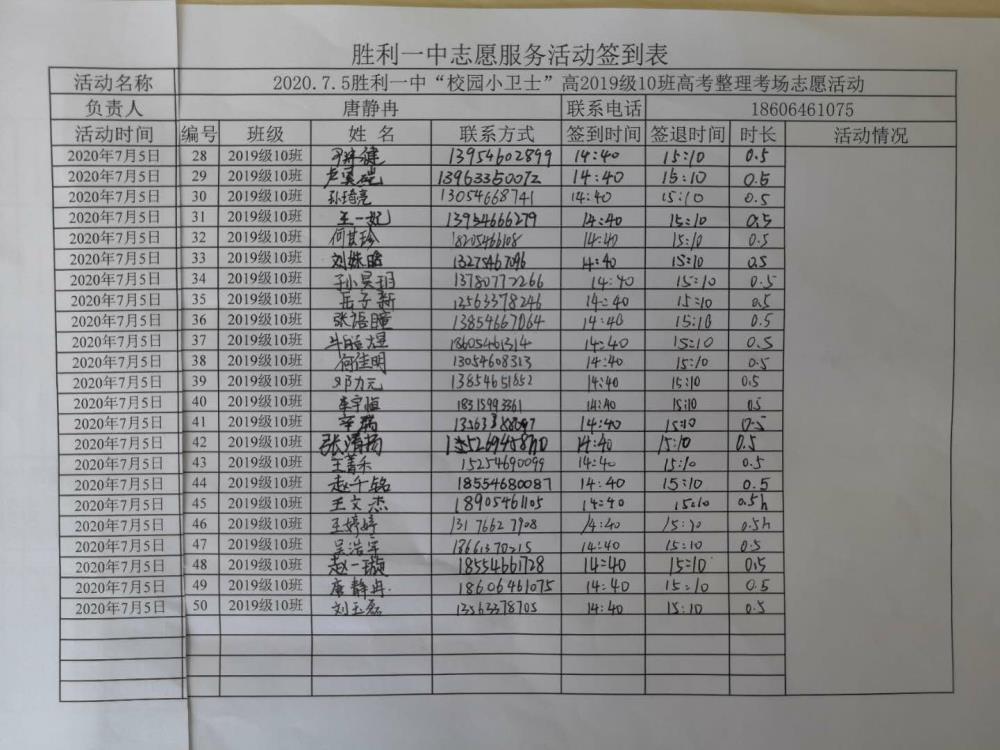 胜利一中志愿服务活动签到表
活动名称 2020.7.5胜利一中“校园小卫士”高2019级10班高考整理考场志愿活动
负责人 唐静冉 联系电话 18606461075
活动时间 编号 班级 姓 名 联系方式 签到时间 签退时间 时长 活动情况
2020年7月5日 28 2019级10班 13954602899 14:40 15:10 0.5
2020年7月5日 29 2019级10班 13963350072 14:40 15:10 0.5
2020年7月5日 30 2019级10班 孙琦亮 13054668741 14:40 15:10 0.5
2020年7月5日 31 2019级10班 王一妃 13954666279 14:40 15:10 0.5
2020年7月5日 32 2019级10班 何其珍 18205466108 14:40 15:10 0.5
2020年7月5日 33 2019级10班 刘姝晗 13275467096 14:40 15:10 0.5
2020年7月5日 34 2019级10班 13780772266 14:40 15:10 0.5
2020年7月5日 35 2019级10班 岳子新 13563378246 14:40 15:10 0.5
2020年7月5日 36 2019级10班 张语瞳 13854667064 14:40 15:10 0.5
2020年7月5日 37 2019级10班 18605461314 14:40 15:10 0.5
2020年7月5日 38 2019级10班 何佳明 13054608313 14:40 15:10 0.5
2020年7月5日 39 2019级10班 邓力元 13854651852 14:40 15:10 0.5
2020年7月5日 40 2019级10班 李宇恒 14:40 15:10 0.5
2020年7月5日 41 2019级10班 14:40 15:10 0.5
2020年7月5日 42 2019级10班 张清扬 14:40 15:10 0.5
2020年7月5日 43 2019级10班 王菁禾 15254690099 14:40 15:10 0.5
2020年7月5日 44 2019级10班 赵千铭 18554680087 14:40 15:10 0.5
2020年7月5日 45 2019级10班 王文杰 18905461105 14:40 15:10 0.5h
2020年7月5日 46 2019级10班 王婷婷 13176627908 14:40 15:10 0.5h
2020年7月5日 47 2019级10班 吴浩宇 18661370215 14:40 15:10 0.5
2020年7月5日 48 2019级10班 赵一璇 18554661728 14:40 15:10 0.5
2020年7月5日 49 2019级10班 唐静冉 18606461075 14:40 15:10 0.5
2020年7月5日 50 2019级10班 刘玉磊 13563378705 14:40 15:10 0.5